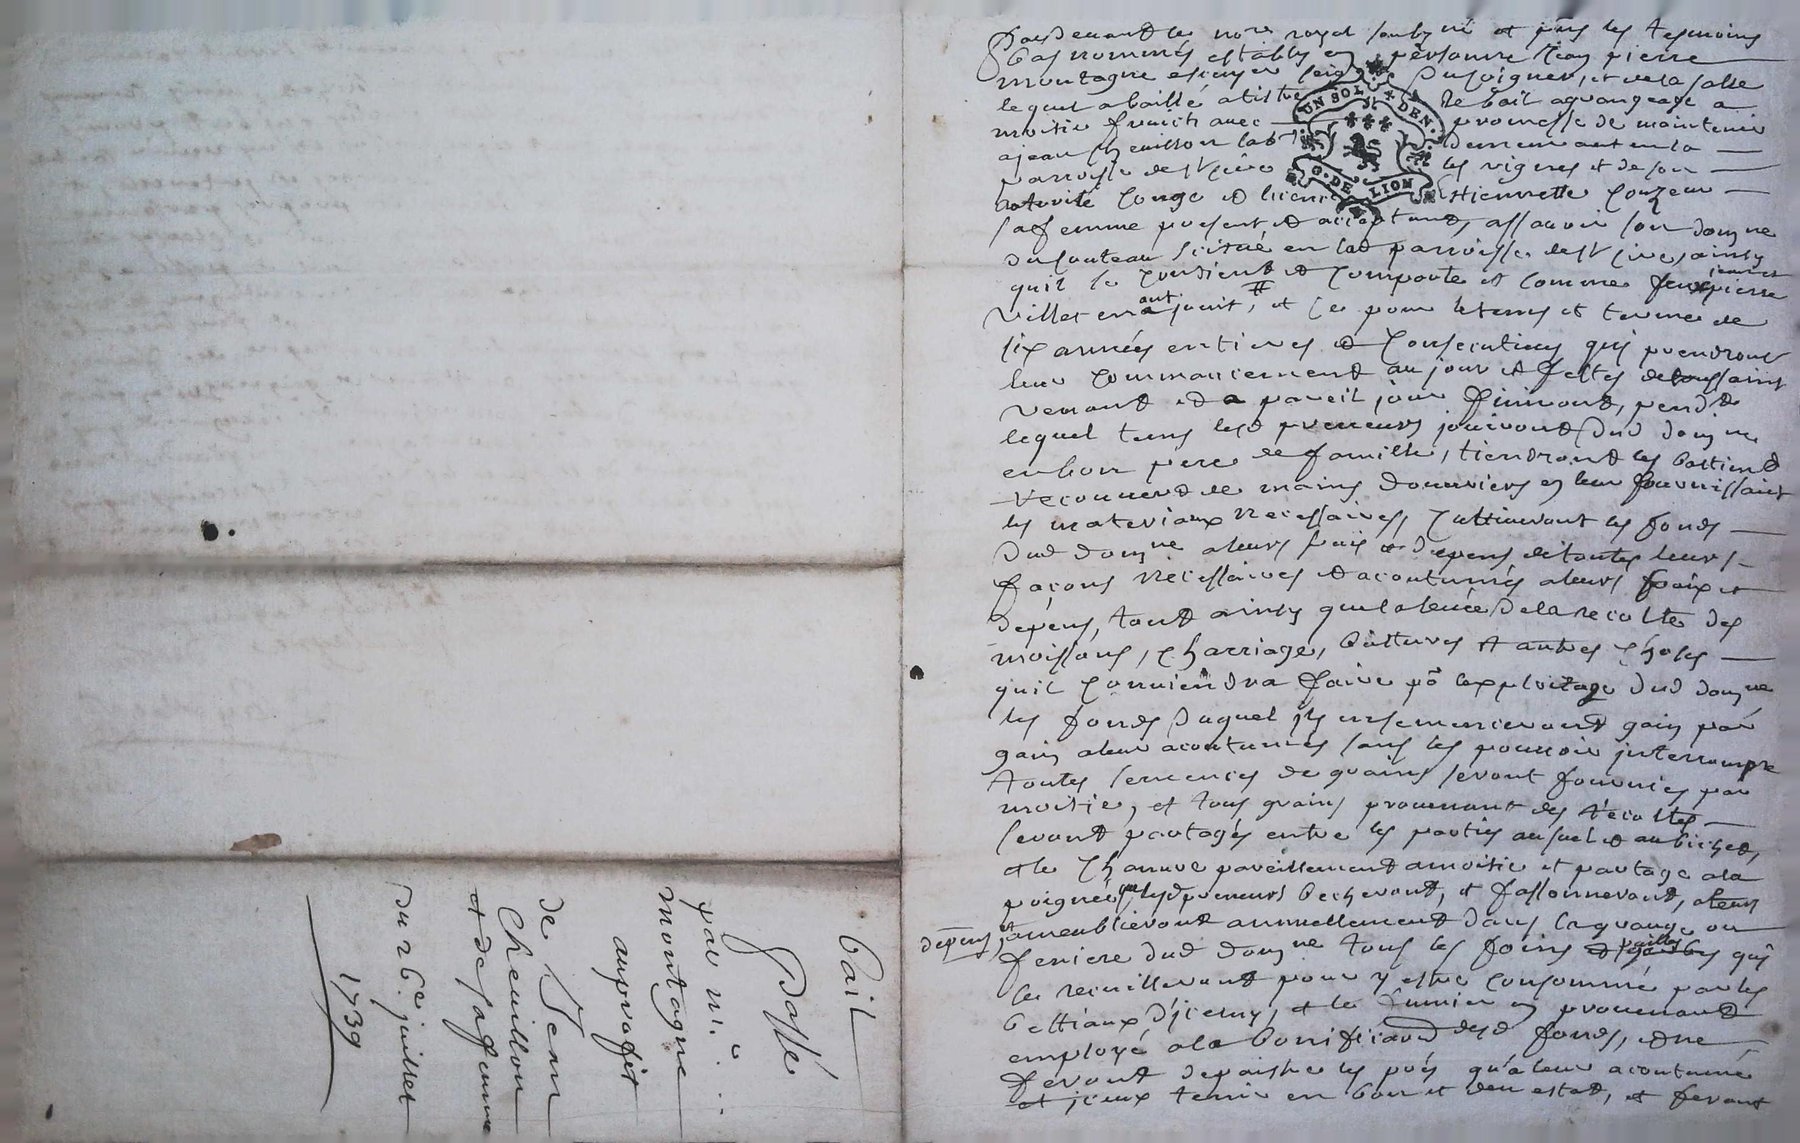 Pardevant le no.re royal soubz.né et pñs les tesmoins
bas nommés estably en personne Jean pierre
montagne escuyer seig Puisoignes, et de la salle
lequel a baillé a tiltre de bail agrangeage a
moitie fruits avec promesse de maintenir
a jean Cheuillon lab.r demeurant en la
parroisse de St les vignes et de son
autorité conge et licence Estiennette
sa femme present et acceptant, assavoir son dom.ne
du scitué en lad parroisse de St ainsy
quil se contient et comporte et comme feus pierre
jean et
Villet en ont jouit, et ce pour le tems et terme de
six années entieres et consecutives qui prendront
leur commancement au jour et festes de toussaint
venant et a pareil jour finiront, pend.t
lequel tems lesd preneurs jouiront dud dom.ne
en bon pere de famille, tiendront les bastiend
recouverd de mains douvriers en leur fournissant
les materiaux necessaires, cultiueront les fonds
dud dom.ne a leurs frais et depens de toutes leurs
façons necessaires et acoutumés a leurs fraix et
depens, tant ainsy que la leuée de la recolte des
moissons, charriage, battures et autres choses
quil conuiendra faire po lexploitage dud dom.ne
les fonds duquel ils ensemenceront gain par
gain a leur acoutumés sans les pouuoir interrompre
toutes semences de grains seront fournies par
moitie, et tous grains prouenant des recoltes
seront partagés entre les parties au suel et au bichet,
et le chanure pareillement a moitie et partage a la
poignée, que lesd preneurs becheront, et fassonneront, a leurs
depens, et ameubliront annuellement dans la grange ou
feniere dud dom.ne tous les foins et pailles qui
se recuilleront pour y estre consommé par les
bestiaux diceluy, et le fumier en prouenand
employé a la bonifiaõn desd fonds, et ne
feront depaistre les prés qu'a leur acoutumé
et iceux tenir en bon et deu estat, et feront
UN SOL 4 DEN.
G. DE LION
Bail
Passé
par m.r
montagne
au profit
de Jean
Cheuillon
et de sa femme
du 26.e juillet
1739